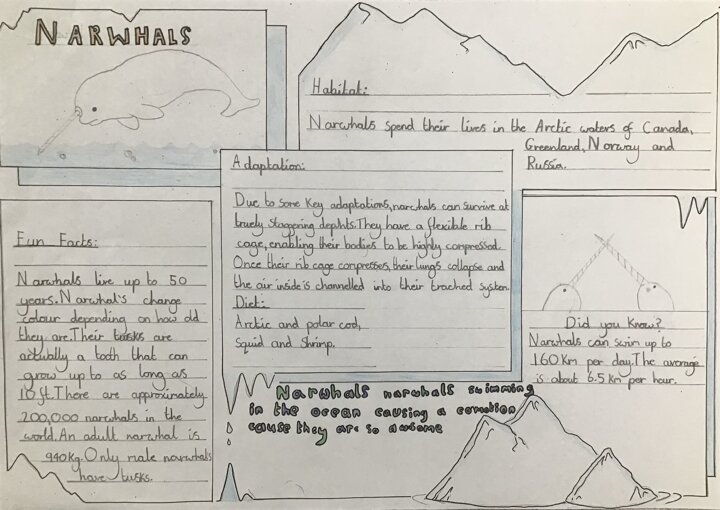 NARWHALS
Habitat:
Narwhals spend their lives in the Arctic waters of Canada,
Greenland, Norway and
Russia.
Adaptation:
Due to some key adaptations, narwhals can survive at
truely staggering dephts. They have a flexible rib
cage, enabling their bodies to be highly compressed.
Once their rib cage compresses, their lungs collapse and
the air inside is channelled into their trached system.
Diet:
Arctic and polar cod,
Squid and Shrimp.
Fun Facts:
Narwhals live up to 50
years. Narwhal's change
colour depending on how old
they are. Their tusks are
actually a tooth that can
grow up to as long as
10 ft. There are approximately
200,000 narwhals in the
world. An adult narwhal is
940kg. Only male narwhals
have tusks.
Did you know?
Narwhals can swim up to
160 Km per day. The average
is about 6.5 Km per hour.
Narwhals narwhals swimming
in the ocean causing a comotion
cause they are so awsome